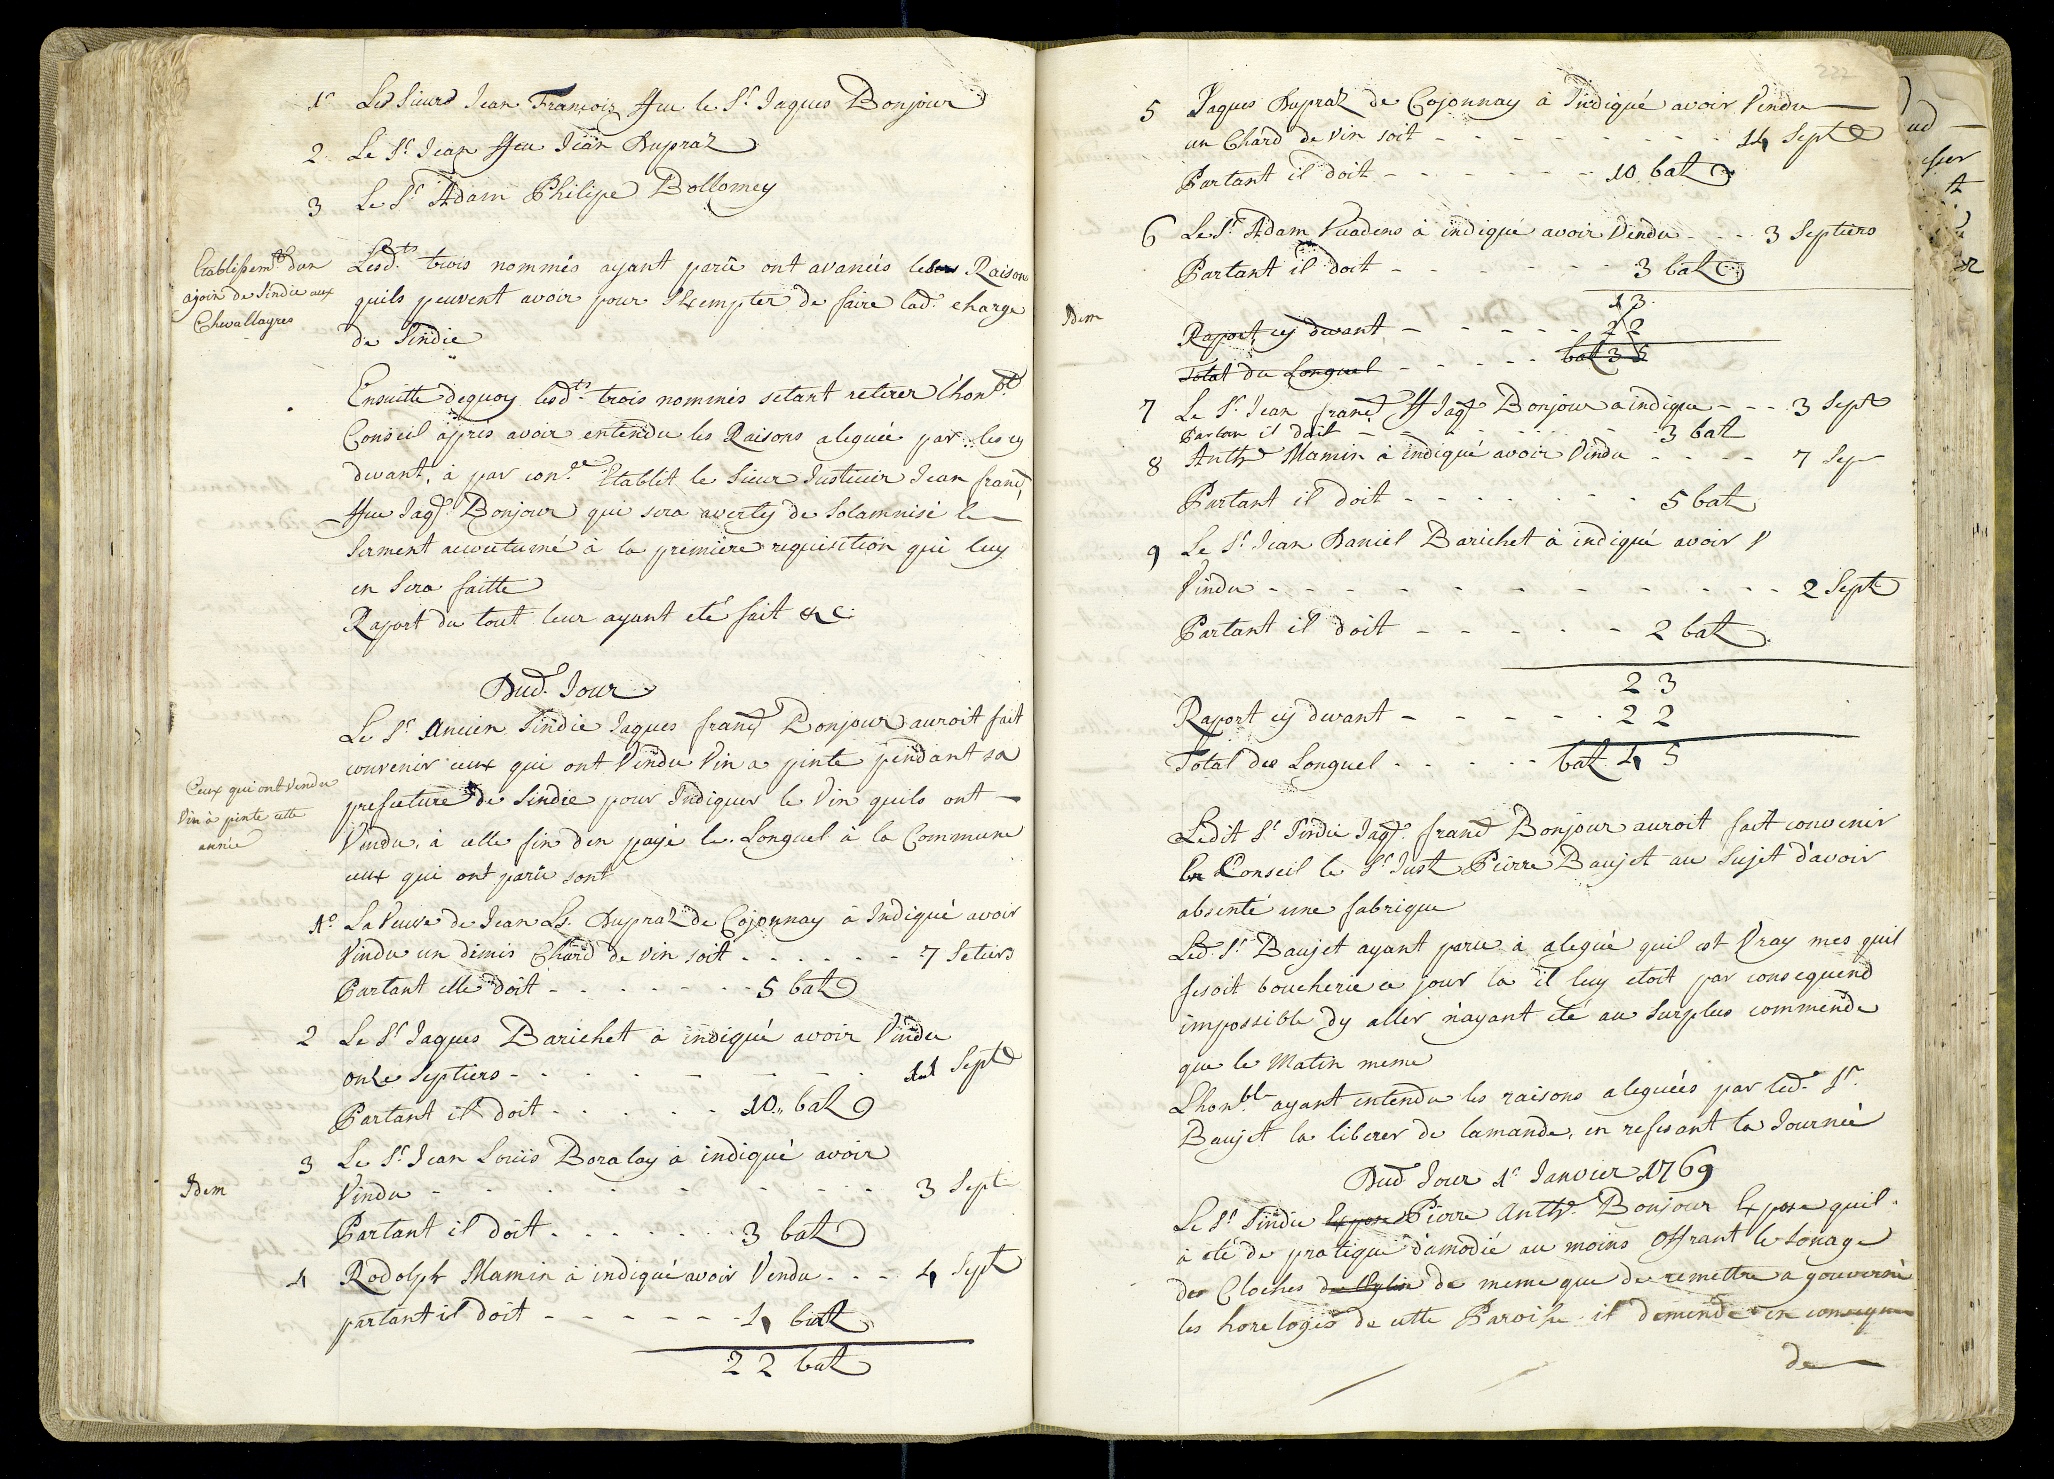 1.r Les Sieurs Jean François ffeu le S.r Jaques Bonjour
2 Le S.r Jean ffeu Jean Dupraz
3 Le S.r Adam Philipe Bollomey
Etablissem.t d'un
ajoin de Sindic aux
Chevallayres
Lesd.ts trois nommés ayant parû ont avancés leur Raison
quils peuvent avoir pour Exempter de faire lad.e charge
de Sindic
Ensuitte dequoy lesd.ts trois nommés setant retirer l'hon.ble
Conseil apris avoir entendu les Raisons aleguée par les cy
devant, à par con.re Etablit le Sieur Justicier Jean franç.s
ffeu Jaq.s Bonjour qui sera averty de Solamnisé le
Serment accoutumé à la première requisition qui luy
en Sera faitte
Raport du tout leur ayant eté fait &c.
Dud.t Jour
Ceux qui ont Vendu
Vin à pinte cette
année
Le S.r Ancien Sindic Jaques franç.s Bonjour auroit fait
convenir ceux qui ont Vendu Vin a pinte pendant sa
prefecture de Sindic pour Indiquer le Vin quils ont
Vendu, à celle fin d'en payé le Longuel à la Commune
ceux qui ont parû sont
1.o La Veuve de Jean Ls. Dupraz de Cojonnay à Indiqué avoir
Vendu un demis Chard de vin soit - - - - - 7 Setiers
Partant elle doit - - - - - 5 batz
2 Le S.r Jaques Barichet a indiqué avoir Vendu
onze Septiers - - - - - 11 Sept.e
Partant il doit - - - - - 10 batz
Idem
3 Le S.r Jean Louis Boralay à indiqué avoir
Vendu - - - - - 3 Sept.
Partant il doit - - - - - 3 batz
4 Rodolph Mamin à indiqué avoir Vendu - - - 4 Sept.
partant il doit - - - - - 4 batz
22 batz
5 Jaques Dupraz de Cojonnay à Indiqué avoir Vendu
un Chard de vin soit - - - - - 14 Sept.e
Partant il doit - - - - - 10 batz
6 Le S.r Adam Vuadens à indiqué avoir Vendu - - - 3 Septiers
Partant il doit - - - - - 3 batz
13
Idem
Raport cy devant - - - - - 22
Total du Longuel - - - - - batz 35
7 Le S.r Jean franç.s ff Jaq.s Bonjour a indiqué - - - 3 Sept.
Partan il doit - - - - - 3 batz
8 Anth.e Mamin à indiqué avoir Vendu - - - - 7 Sep
Partant il doit - - - - - 5 batz
9 Le S.r Jean Daniel Barichet à indiqué avoir V
Vendu - - - - - 2 Sept.
Partant il doit - - - - - 2 batz
23
Raport cy devant - - - - - 22
Total du Longuel - - - - - batz 45
Ledit S.r Sindic Jaq.s franç.s Bonjour auroit fait convenir
en Conseil le S.r Just. Pierre Baujet au Sujet d'avoir
absenté une fabrique
Led.t S.r Baujet ayant paru à alegué quil est Vray mes quil
fesoit boucherie ce jour la il luy etoit par consequend
impossible d'y aller n'ayant été au Surplus commende
que le Matin meme
L'hon.ble ayant entendu les raisons aleguées par led.t S.r
Baujet la liberer de lamande, en refesant la Journée
Dud.t Jour 1.r Janvier 1769
Le S.r Sindic Expose Pierre Anth.e Bonjour Expose quil
à eté de pratique d'amodié au moins Offrant le Sonage
des Cloches de l'Eglise de meme que de remettre a gouverné
les horeloges de cette Paroisse. il demende en conseque
de